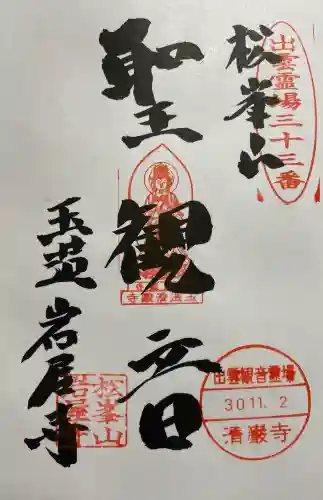 出雲霊場三十三番
松峯山
聖観音
玉造
岩屋寺
玉造清巌寺
松峯山
岩屋寺
出雲観音霊場
30 11. 2
清巌寺